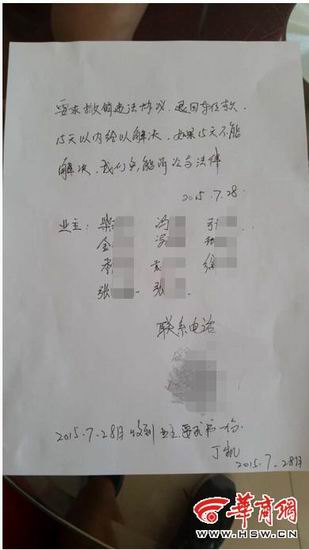 要求撤销违法协议、退回车位款.
15天以内给以解决.如果15天不能
解决.我们只能诉诸与法律
2015.7.28
业主:柴 冯
金
李 袁 徐
张 张
联系电话
2015.7.28日 收到业主要求书一份.
丁凯
2015.7.28日
华商网
WWW.HSW.CN